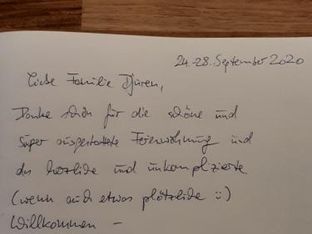 24.-28. September 2020
Liebe Familie Djuren,
Danke schön für die schöne und
super ausgestattete Ferienwohnung und
das herzliche und unkomplizierte
(wenn auch etwas plötzliche :-)
Willkommen –